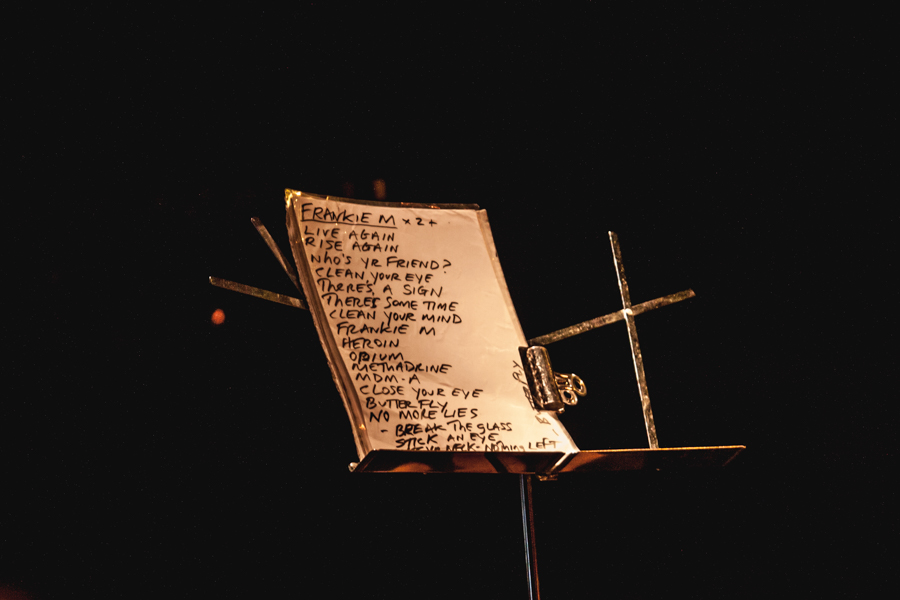 FRANKIE M x 2 +
LIVE AGAIN
RISE AGAIN
WHO'S YR FRIEND?
CLEAN YOUR EYE
THERE'S A SIGN
THERE'S SOME TIME
CLEAN YOUR MIND
FRANKIE M
HEROIN
OPIUM
METHADRINE
MDM-A
CLOSE YOUR EYE
BUTTERFLY
NO MORE LIES
- BREAK THE GLASS
STICK AN EYE
NECK - NOTHING LEFT